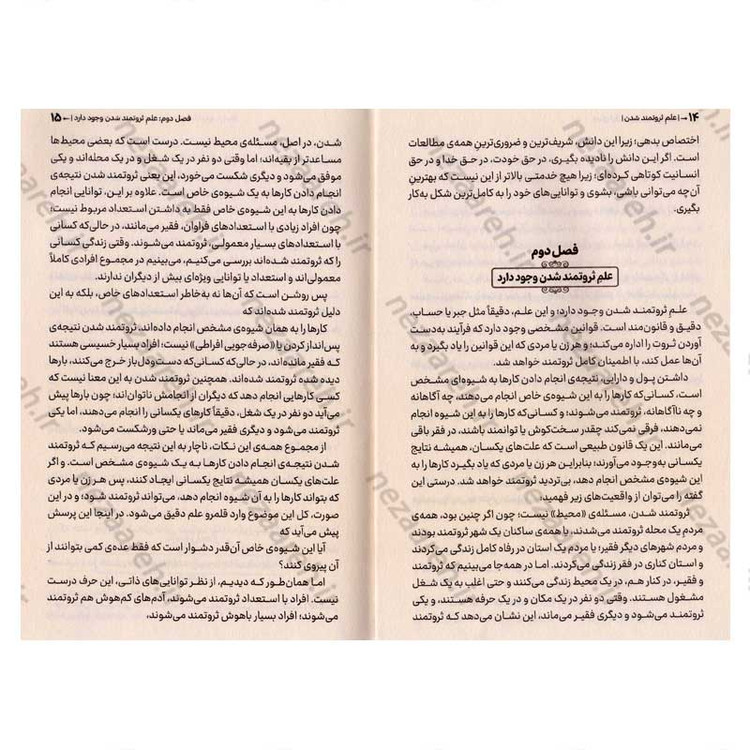 ۱۴ → | علم ثروتمند شدن |
اختصاص بدهی؛ زیرا این دانش، شریف‌ترین و ضروری‌ترین همه‌ی مطالعات
است. اگر این دانش را نادیده بگیری، در حق خودت، در حق خدا و در حق
انسانیت کوتاهی کرده‌ای؛ زیرا هیچ خدمتی بالاتر از این نیست که بهترینِ
آن‌چه می‌توانی باشی، بشوی و توانایی‌های خود را به کامل‌ترین شکل به‌کار
بگیری.
فصل دوم
علمِ ثروتمند شدن وجود دارد
علم ثروتمند شدن وجود دارد؛ و این علم، دقیقاً مثل جبر یا حساب،
دقیق و قانون‌مند است. قوانین مشخصی وجود دارد که فرآیند به‌دست
آوردن ثروت را اداره می‌کند؛ و هر زن یا مردی که این قوانین را یاد بگیرد و به
آن‌ها عمل کند، با اطمینان کامل ثروتمند خواهد شد.
داشتن پول و دارایی، نتیجه‌ی انجام دادن کارها به شیوه‌ای مشخص
است. کسانی‌که کارها را به این شیوه‌ی خاص انجام می‌دهند، چه آگاهانه
و چه ناآگاهانه، ثروتمند می‌شوند؛ و کسانی‌که کارها را به این شیوه انجام
نمی‌دهند، فرقی نمی‌کند چقدر سخت‌کوش یا توانمند باشند، در فقر باقی
می‌مانند. این یک قانون طبیعی است که علت‌های یکسان، همیشه نتایج
یکسانی به‌وجود می‌آورند؛ بنابراین هر زن یا مردی که یاد بگیرد کارها را به
این شیوه‌ی مشخص انجام دهد، بی‌تردید ثروتمند خواهد شد. درستی این
گفته را می‌توان از واقعیت‌های زیر فهمید:
ثروتمند شدن، مسئله‌ی «محیط» نیست؛ چون اگر چنین بود، همه‌ی
مردم یک محله ثروتمند می‌شدند، یا همه‌ی ساکنان یک شهر ثروتمند بودند
و مردم شهرهای دیگر فقیر؛ یا مردم یک استان در رفاه کامل زندگی می‌کردند
و استان کناری در فقر زندگی می‌کردند. اما در همه‌جا می‌بینیم که ثروتمند
و فقیر، در کنار هم، در یک محیط زندگی می‌کنند و حتی اغلب به یک شغل
مشغول هستند. وقتی دو نفر در یک مکان و در یک حرفه هستند، و یکی
ثروتمند می‌شود و دیگری فقیر می‌ماند، این نشان می‌دهد که ثروتمند
فصل دوم: علم ثروتمند شدن وجود دارد | ← ۱۵
شدن، در اصل، مسئله‌ی محیط نیست. درست است که بعضی محیط‌ها
مساعدتر از بقیه‌اند؛ اما وقتی دو نفر در یک شغل و در یک محله‌اند و یکی
موفق می‌شود و دیگری شکست می‌خورد، این یعنی ثروتمند شدن نتیجه‌ی
انجام دادن کارها به یک شیوه‌ی خاص است. علاوه بر این، توانایی انجام
دادن کارها به این شیوه‌ی خاص فقط به داشتن استعداد مربوط نیست؛
چون افراد زیادی با استعدادهای فراوان، فقیر می‌مانند، در حالی‌که کسانی
با استعدادهای بسیار معمولی، ثروتمند می‌شوند. وقتی زندگی کسانی
را که ثروتمند شده‌اند بررسی می‌کنیم، می‌بینیم در مجموع افرادی کاملاً
معمولی‌اند و استعداد یا توانایی ویژه‌ای بیش از دیگران ندارند.
پس روشن است که آن‌ها نه به‌خاطر استعدادهای خاص، بلکه به این
دلیل ثروتمند شده‌اند که
کارها را به همان شیوه‌ی مشخص انجام داده‌اند. ثروتمند شدن نتیجه‌ی
پس‌انداز کردن یا «صرفه‌جویی افراطی» نیست؛ افراد بسیار خسیسی هستند
که فقیر مانده‌اند، در حالی‌که کسانی‌که دست‌ودل‌باز خرج می‌کنند، بارها
دیده شده ثروتمند شده‌اند. همچنین ثروتمند شدن به این معنا نیست که
کسی کارهایی انجام دهد که دیگران از انجامش ناتوان‌اند؛ چون بارها پیش
می‌آید دو نفر در یک شغل، دقیقاً کارهای یکسانی را انجام می‌دهند، اما یکی
ثروتمند می‌شود و دیگری فقیر می‌ماند یا حتی ورشکست می‌شود.
از مجموع همه‌ی این نکات، ناچار به این نتیجه می‌رسیم که ثروتمند
شدن نتیجه‌ی انجام دادن کارها به یک شیوه‌ی مشخص است. و اگر
علت‌های یکسان همیشه نتایج یکسانی ایجاد کنند، پس هر زن یا مردی
که بتواند کارها را به آن شیوه انجام دهد، می‌تواند ثروتمند شود؛ و در این
صورت، کل این موضوع وارد قلمرو علم دقیق می‌شود. در اینجا این پرسش
پیش می‌آید که
آیا این شیوه‌ی خاص آن‌قدر دشوار است که فقط عده‌ی کمی بتوانند از
آن پیروی کنند؟
اما همان‌طور که دیدیم، از نظر توانایی‌های ذاتی، این حرف درست
نیست. افراد با استعداد ثروتمند می‌شوند، آدم‌های کم‌هوش هم ثروتمند
می‌شوند؛ افراد بسیار باهوش ثروتمند می‌شوند،
nezaareh.ir